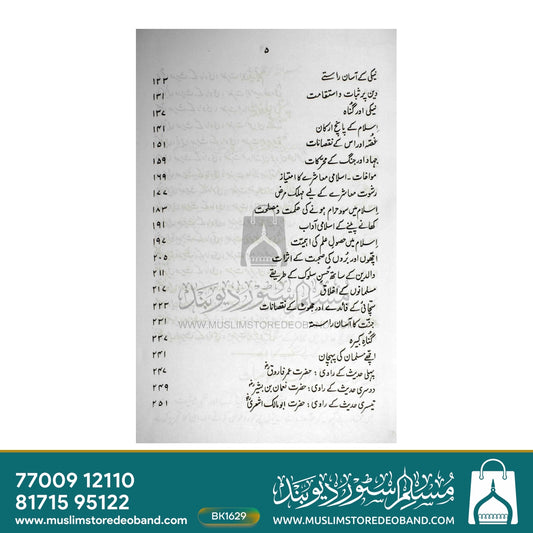 ۵
نیکی کے آسان راستے ۱۲۳
دین پر ثبات و استقامت ۱۳۱
نیکی اور گناہ ۱۳۷
اسلام کے پانچ ارکان ۱۴۱
غصّہ اور اس کے نقصانات ۱۵۱
جہاد اور جنگ کے محرکات ۱۵۹
مواخات ۔ اسلامی معاشرے کا امتیاز ۱۶۹
رشوت معاشرے کے لیے مہلک مرض ۱۷۷
اسلام میں سود حرام ہونے کی حکمت و مصلحت ۱۸۳
کھانے پینے کے اسلامی آداب ۱۹۱
اسلام میں حصولِ علم کی اہمیت ۱۹۷
اچھوں اور بُروں کی صحبت کے اثرات ۲۰۵
والدین کے ساتھ حُسنِ سلوک کے طریقے ۲۱۱
مسلمانوں کے اخلاق ۲۱۷
سچائی کے فائدے اور جھوٹ کے نقصانات ۲۲۳
جنت کا آسان راستہ ۲۳۱
گناہِ کبیرہ ۲۳۷
اچھے مسلمان کی پہچان ۲۴۱
پہلی حدیث کے راوی : حضرت عمر فاروقؓ ۲۴۷
دوسری حدیث کے راوی : حضرت نعمان بن بشیرؓ ۲۴۹
تیسری حدیث کے راوی : حضرت ابو مالک اشعریؓ ۲۵۱
مسلم سٹور دیوبند
WWW.MUSLIMSTOREDEOBAND.COM
77009 12110
81715 95122
www.muslimstoredeoband.com
BK1629
مسلم سٹور دیوبند
WWW.MUSLIMSTOREDEOBAND.COM